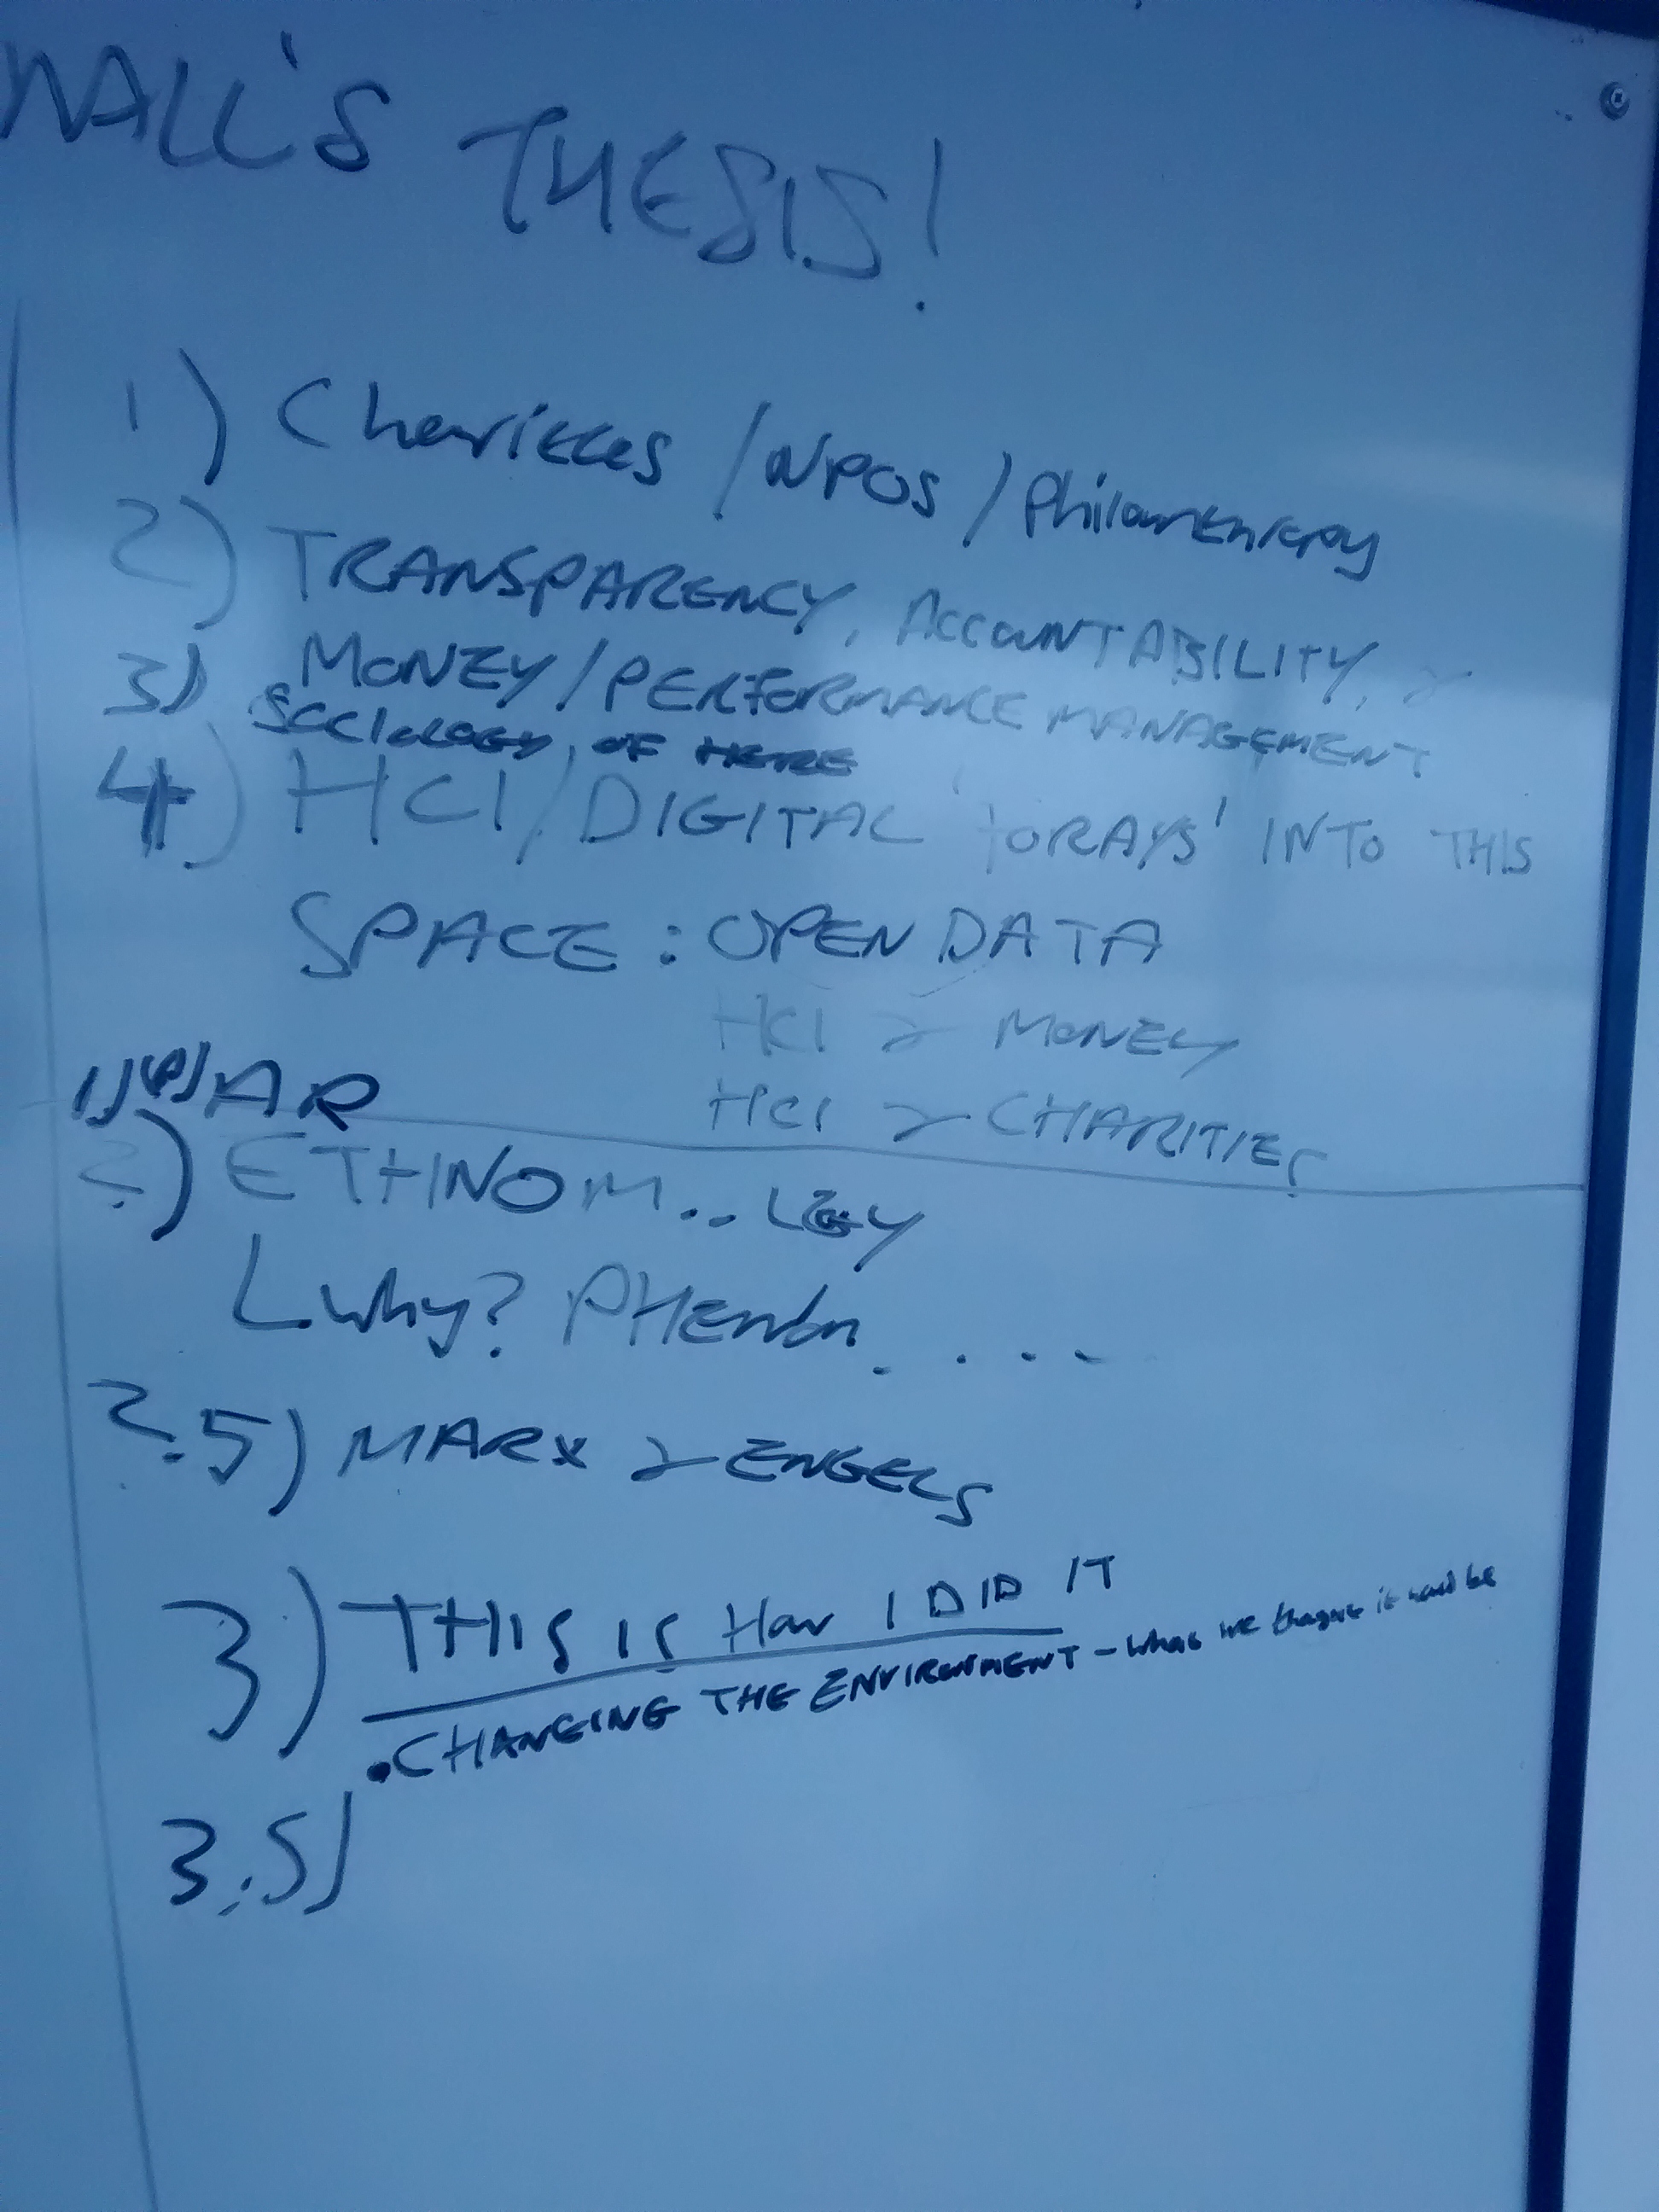 WALL'S THESIS!
1) Charities / NPOS / Philanthropy
2) TRANSPARENCY, ACCOUNTABILITY, &
3) MONEY/PERFORMANCE MANAGEMENT
SOCIOLOGY OF HERE
4) HCI/DIGITAL 'forays' INTO THIS
SPACE: OPEN DATA
HCI & MONEY
HCI & CHARITIES
1) (P)AR
2) ETHNOM..LGY
Why? PHenom. . . . -
2.5) MARX & ENGELS
3) THIS IS How I DID IT
• CHANGING THE ENVIRONMENT - what we thought it would be
3.5)